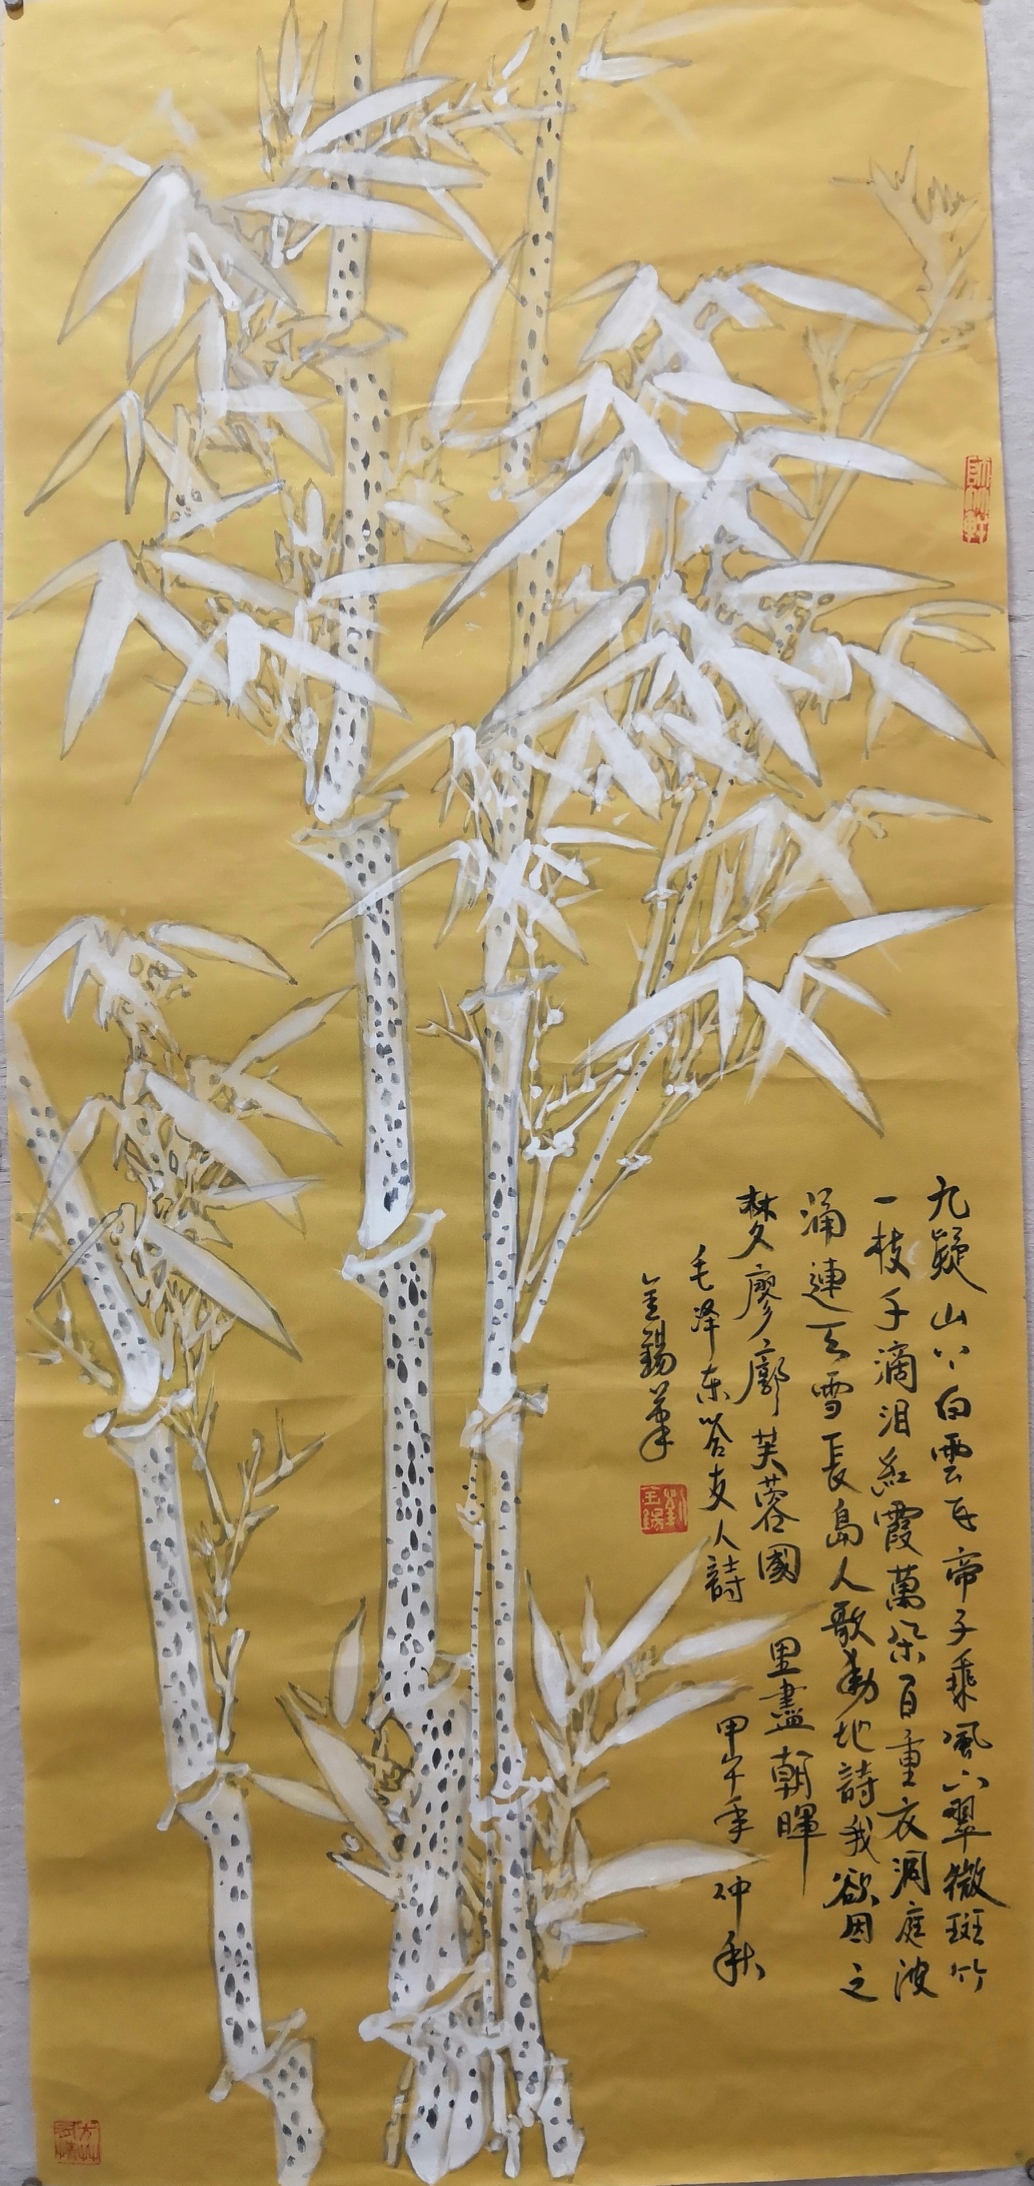 九疑山上白雲飛帝子乘風下翠微斑竹
一枝千滴淚紅霞萬朵百重衣洞庭波
涌連天雪長島人歌動地詩我欲因之
夢廖廓芙蓉國里盡朝暉
毛泽东答友人詩 甲午年仲秋
金錫筆
劉金錫